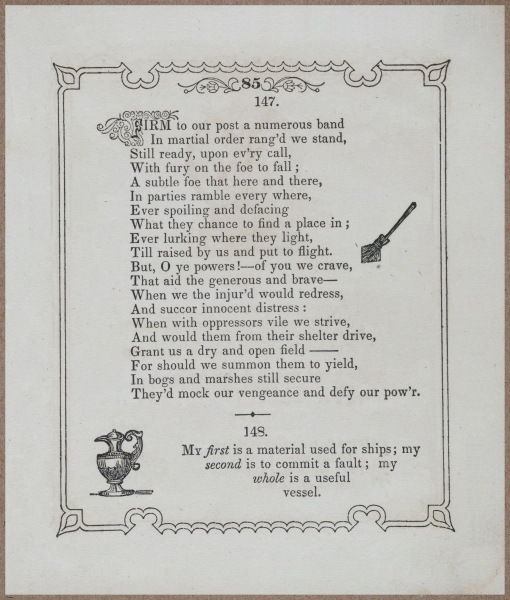 85
147.
FIRM to our post a numerous band
In martial order rang'd we stand,
Still ready, upon ev'ry call,
With fury on the foe to fall;
A subtle foe that here and there,
In parties ramble every where,
Ever spoiling and defacing
What they chance to find a place in;
Ever lurking where they light,
Till raised by us and put to flight.
But, O ye powers!—of you we crave,
That aid the generous and brave—
When we the injur'd would redress,
And succor innocent distress:
When with oppressors vile we strive,
And would them from their shelter drive,
Grant us a dry and open field ——
For should we summon them to yield,
In bogs and marshes still secure
They'd mock our vengeance and defy our pow'r.
148.
MY first is a material used for ships; my
second is to commit a fault; my
whole is a useful
vessel.